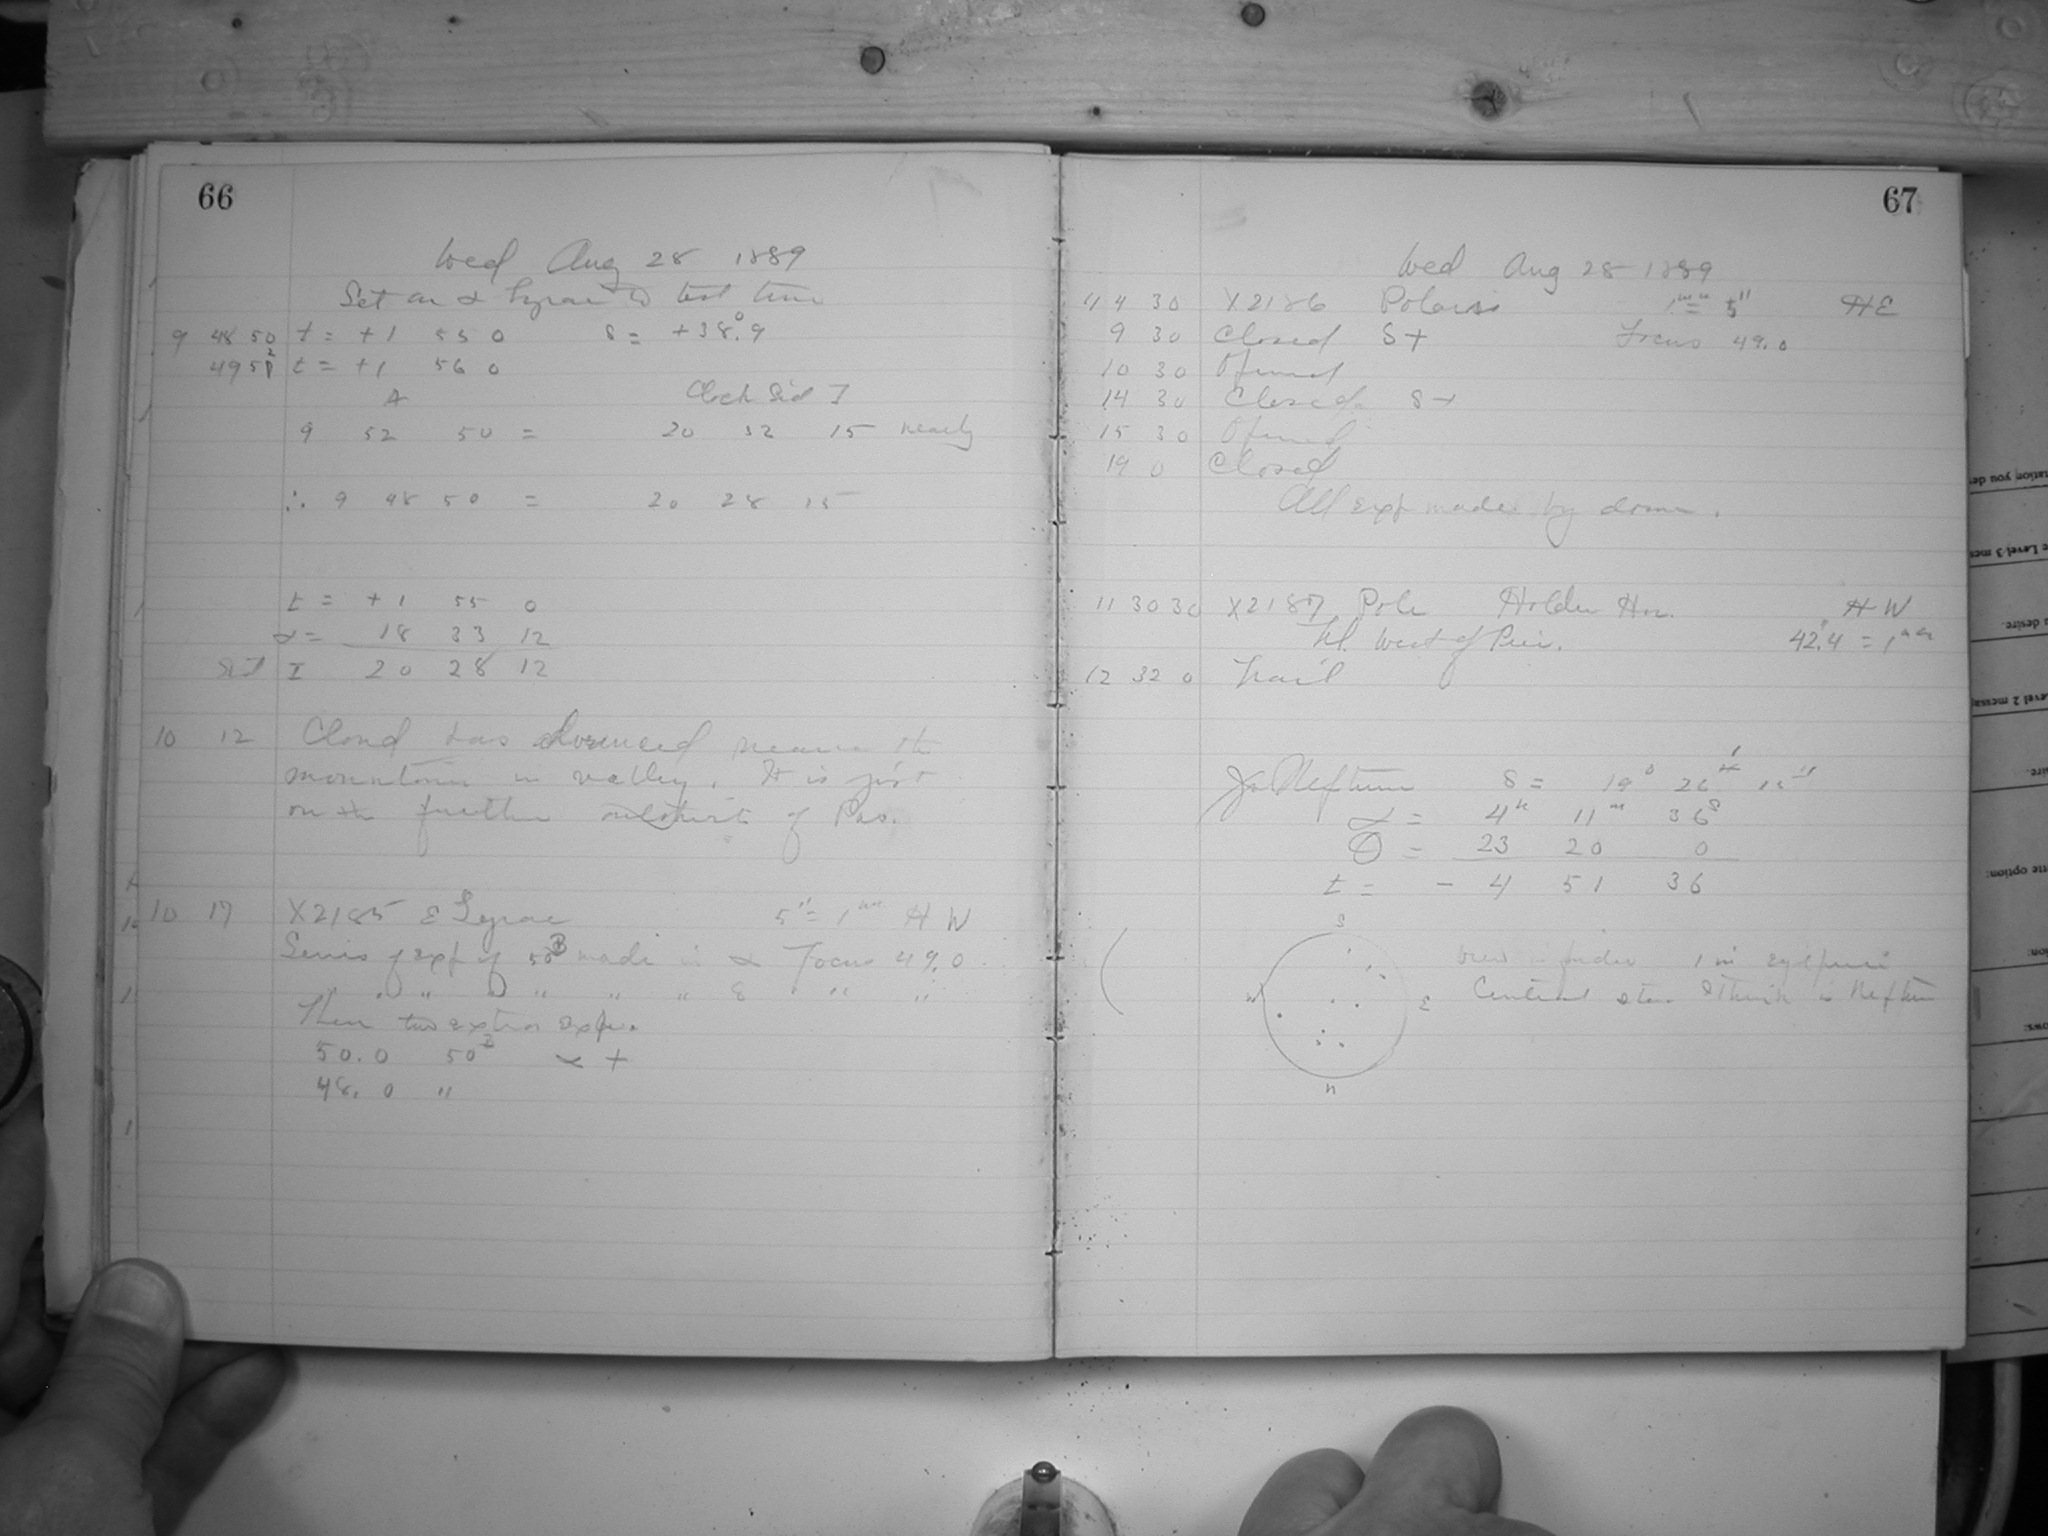 66
Wed Aug 28 1889
Set on α Lyrae to test time
9 48 50 t = +1 55 0 δ = +38°.9
49 50 t = +1 56 0
A Clock Sid I
9 52 50 = 20 32 15 nearly
∴ 9 48 50 = 20 28 15
t = +1 55 0
α = 18 33 12
Sid I 20 28 12
10 12 Cloud has advanced nearer the
mountain in valley. It is just
on the further outskirts of Pas.
10 17 X2185 ε Lyrae 5" = 1mm H W
Series of exp of 50 made in α Focus 49.0
" " " " " " δ " " "
Then two extra exps.
50.0 50 α +
48.0 "
67
Wed Aug 28 1889
11 4 30 X2186 Polaris 1mm = 5" HE
9 30 Closed S+ Focus 49.0
10 30 Opened
14 30 Closed S+
15 30 Opened
19 0 Closed
All exp made by dome.
11 30 30 X2187 Pole Holder Hor. H W
Tel. West of Pier. 42".4 = 1mm
12 32 0 Trail
For Neptune δ = 19° 26'
α = 4h 11m 36s
θ = 23 20 0
t = - 4 51 36
S
view in finder 1 in eyepiece
W E
Central star I think is Neptune
N